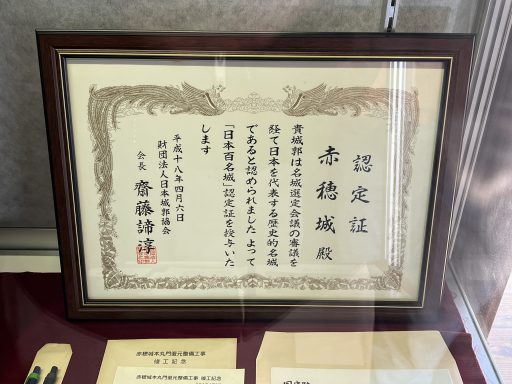 認定証
赤穂城殿
貴城郭は名城選定会議の審議を
経て日本を代表する歴史的名城
であると認められました よって
「日本百名城」認定証を授与いた
します
平成十八年四月六日
財団法人日本城郭協会
会長 齋藤諦淳
赤穂城本丸門復元整備工事
竣工記念
赤穂城本丸門復元整備工事 竣工記念